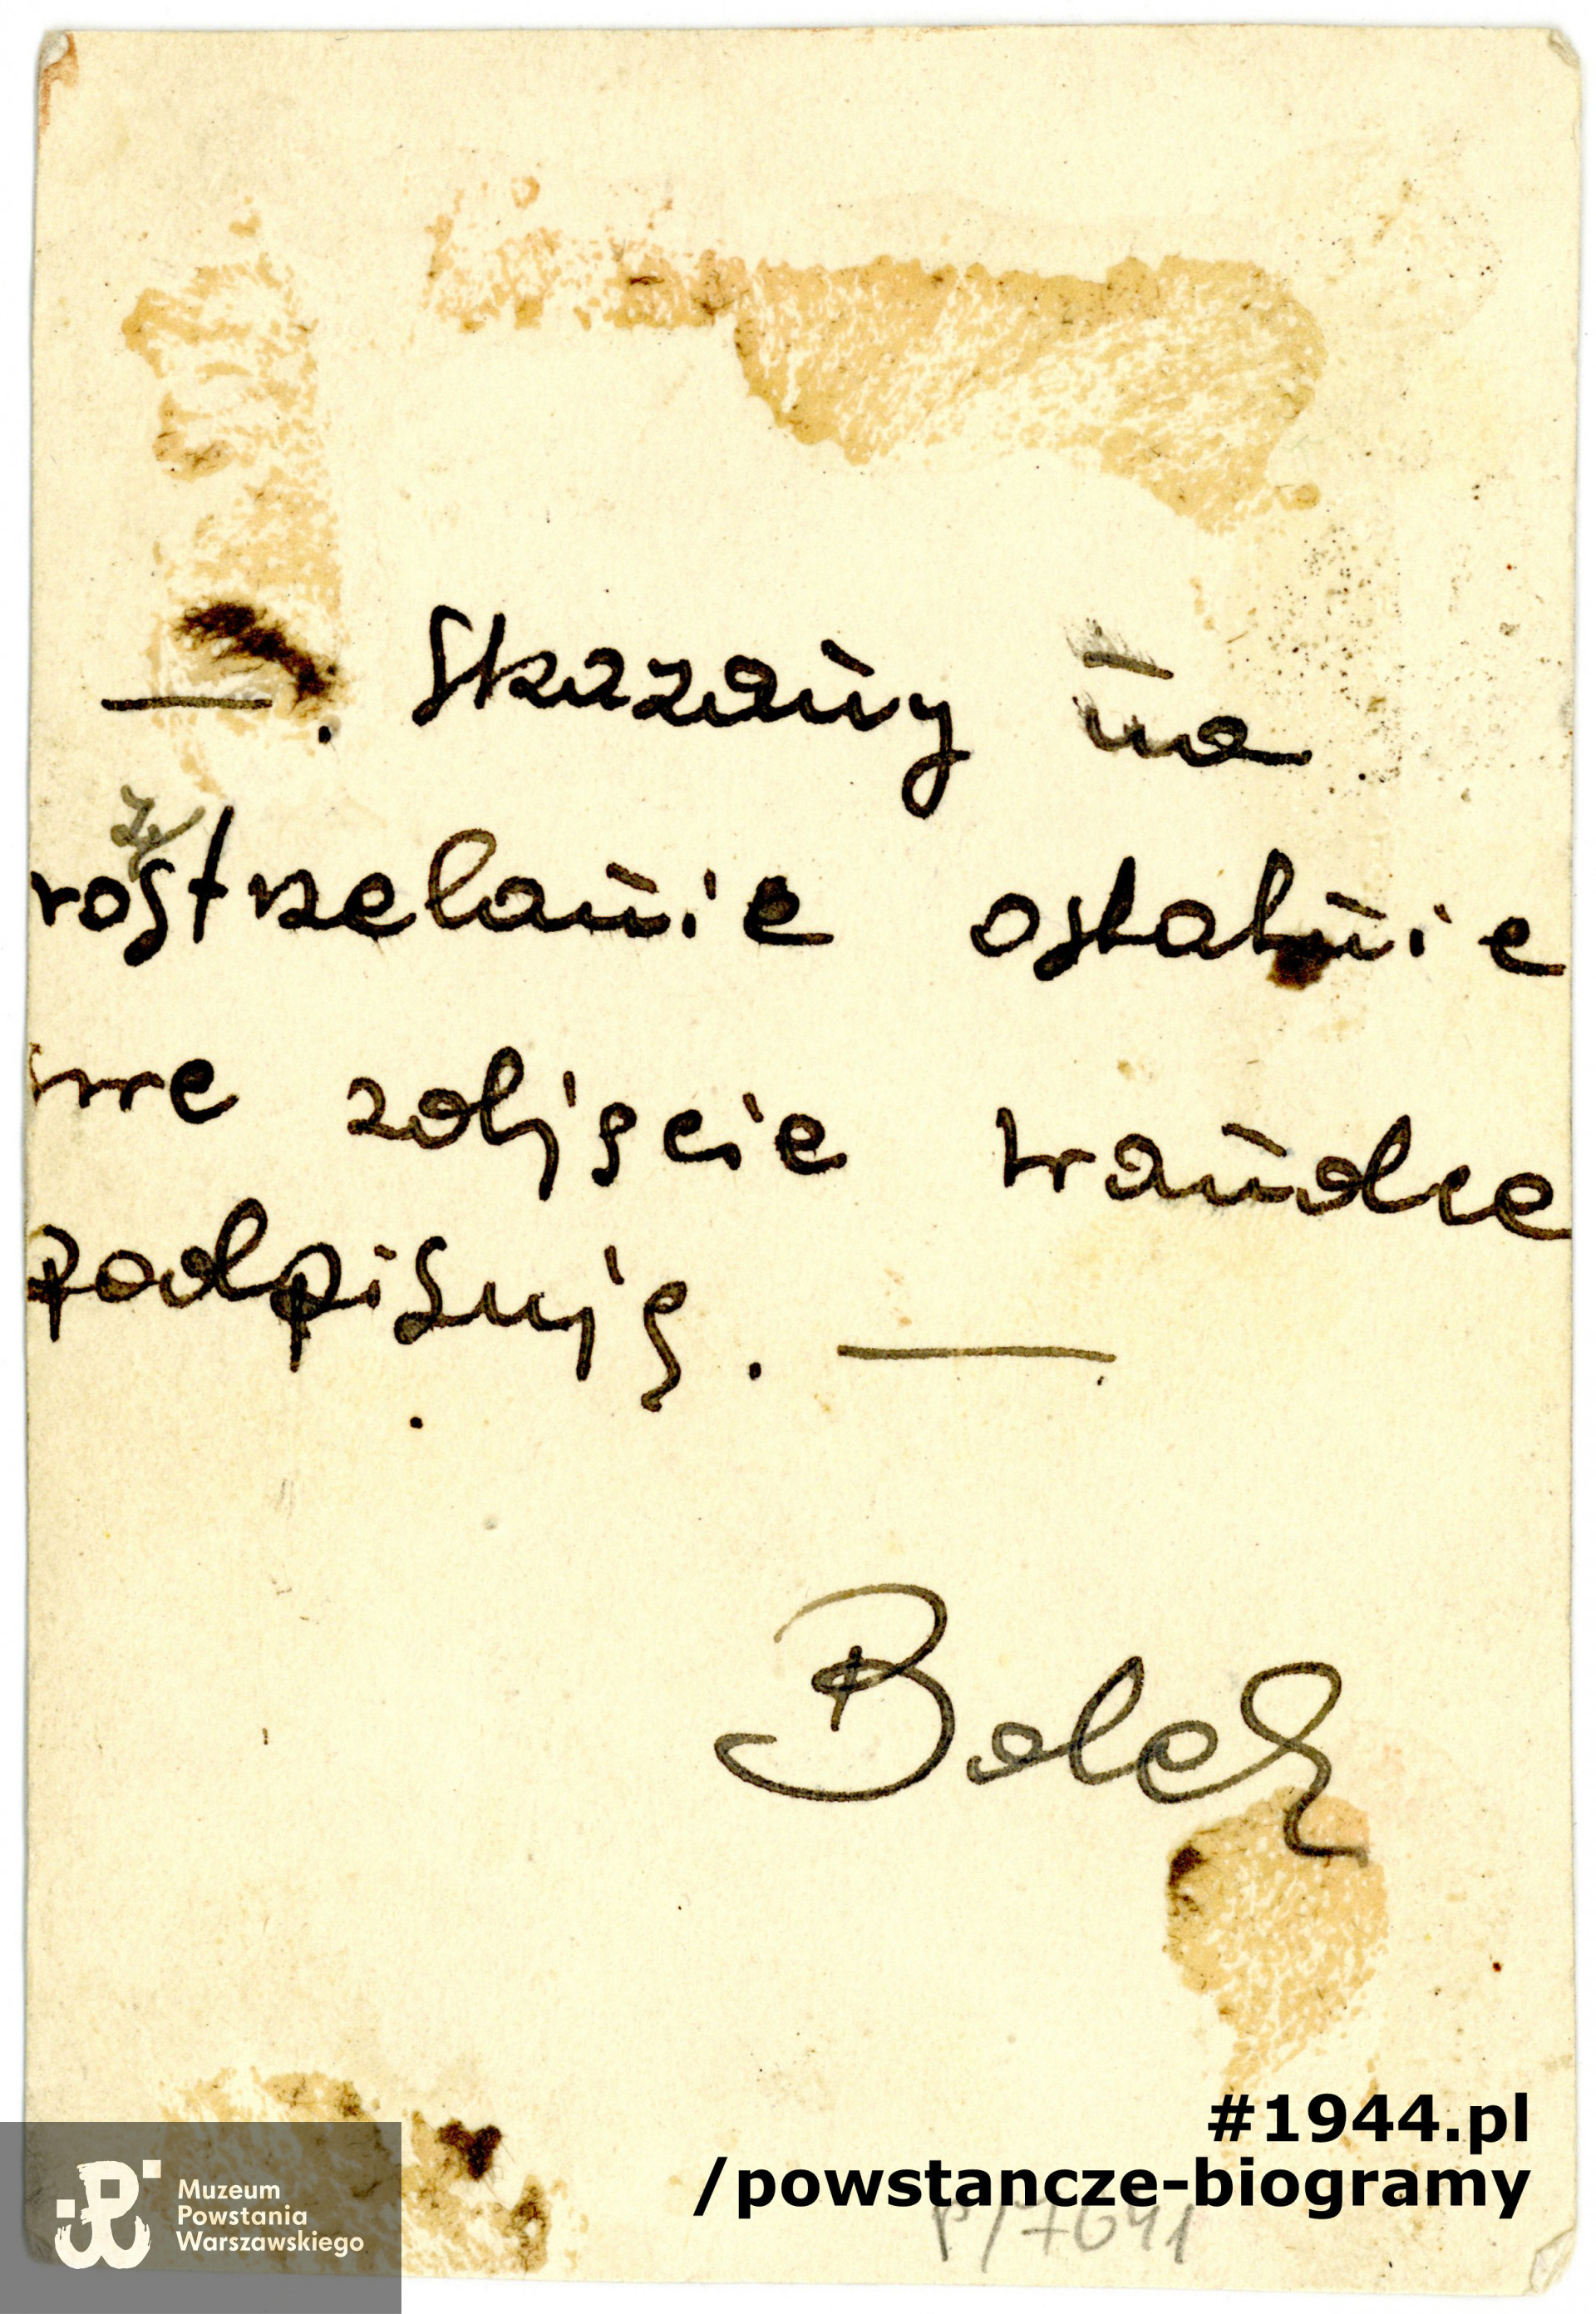 —. Skazany na
rostrzelanie ostatnie
swe zdjęcie Wandzie
podpisuję. —
Bolek
#1944.pl
/powstancze-biogramy
P/7641
Muzeum
Powstania
Warszawskiego